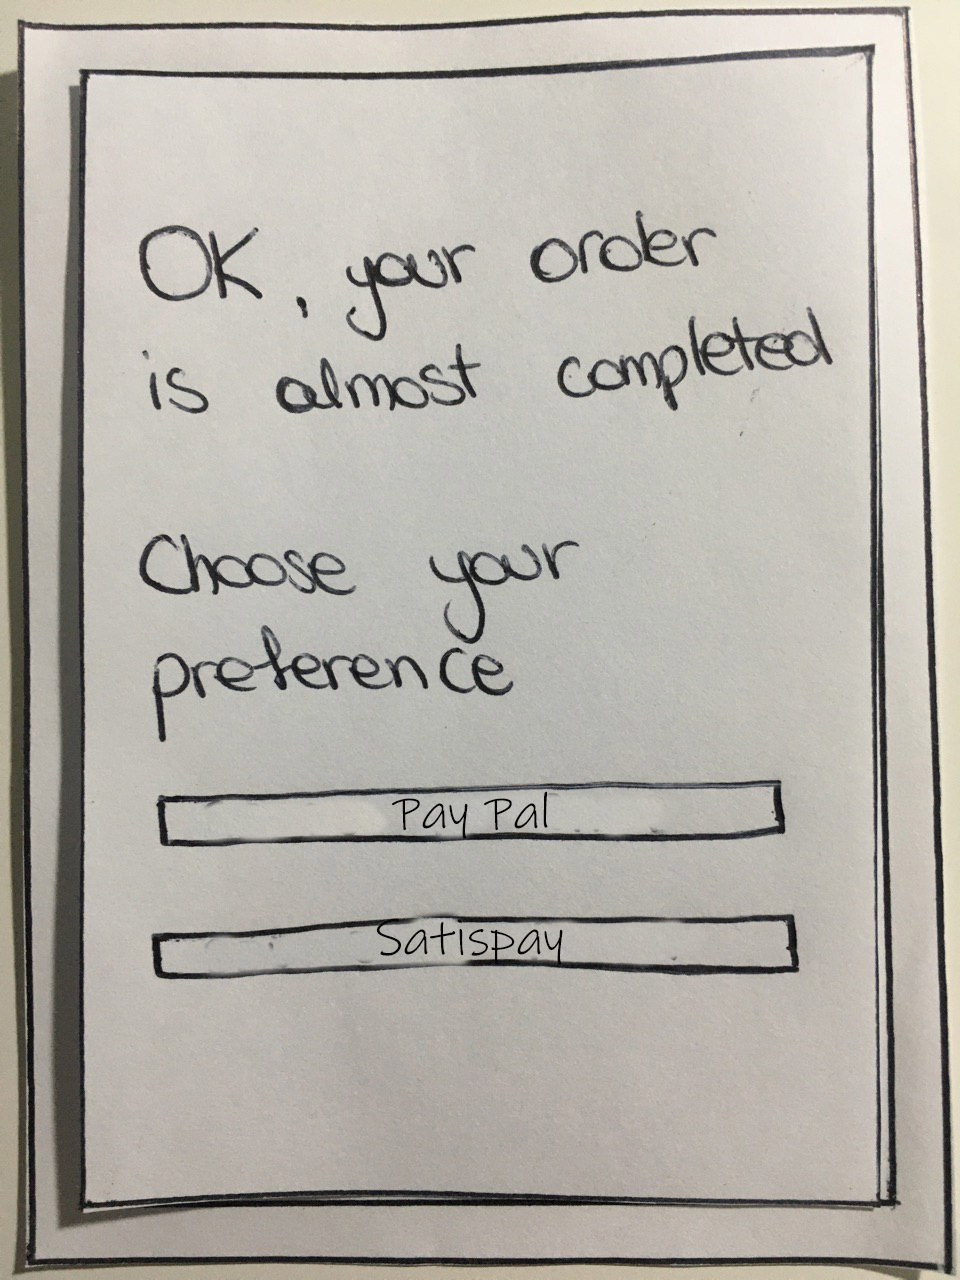 OK, your order
is almost completed
Choose your
preference
Pay Pal
Satispay